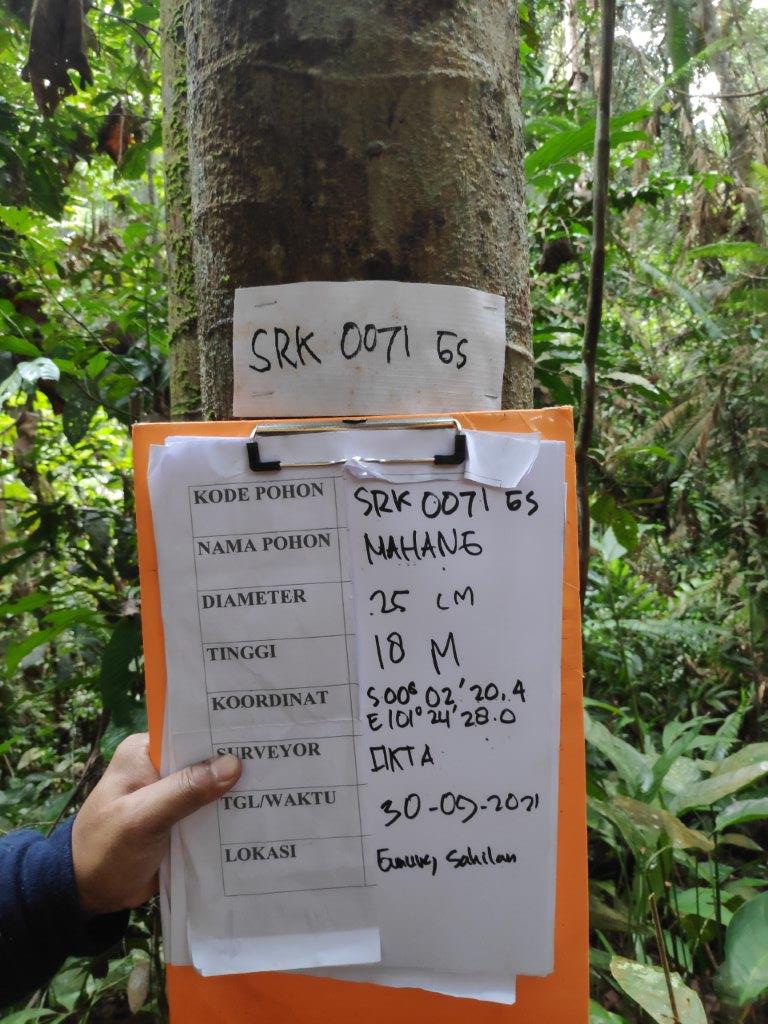 SRK 0071 GS
KODE POHON SRK 0071 GS
NAMA POHON MAHANG
DIAMETER 25 CM
TINGGI 18 M
KOORDINAT S 00° 02' 20.4
E 101° 24' 28.0
SURVEYOR OKTA
TGL/WAKTU 30-09-2021
LOKASI Gunung Sahilan